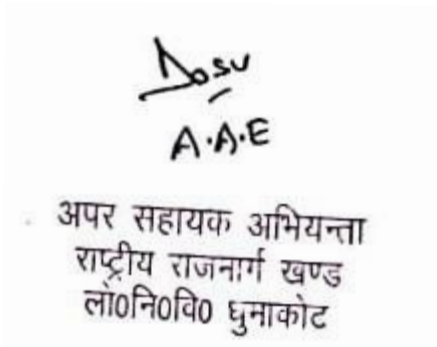 A.A.E
अपर सहायक अभियन्ता
राष्ट्रीय राजमार्ग खण्ड
लो0नि0वि0 धुमाकोट